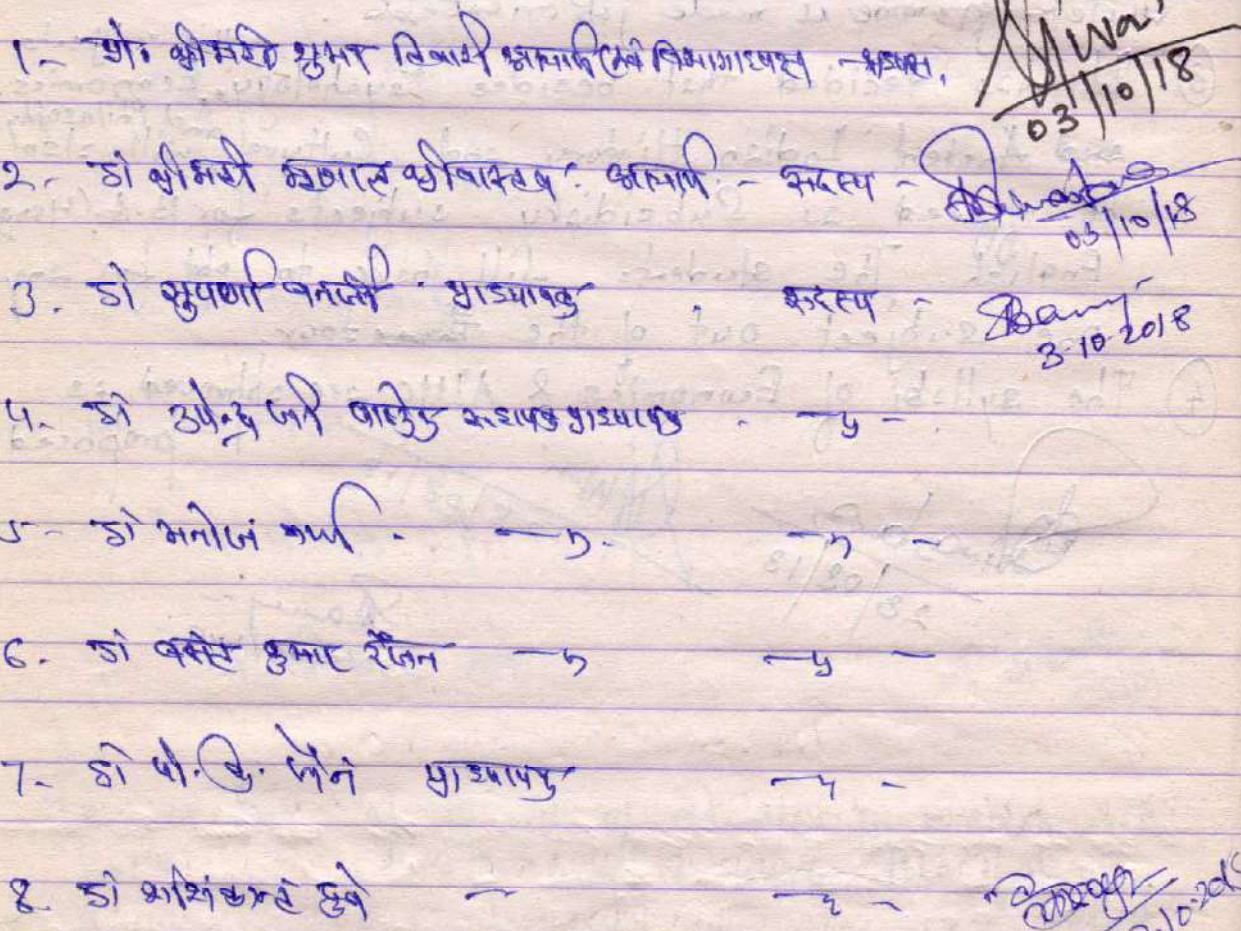 1- प्रो. श्रीमती शुभा तिवारी आचार्य एवं विभागाध्यक्ष - अध्यक्ष,
03/10/18
2- डॉ श्रीमती मृणाल श्रीवास्तव. आचार्य - सदस्य -
03/10/18
3. डॉ सुपर्णा बनर्जी प्राध्यापक सदस्य -
3-10-2018
4- डॉ उपेन्द्र प्राध्यापक - " -
5- डॉ मनोज - " - - " -
6. डॉ बसंत कुमार रंजन - " - " -
7- डॉ पी. जैन प्राध्यापक - " -
8. डॉ शशिकान्त दुबे - - " -